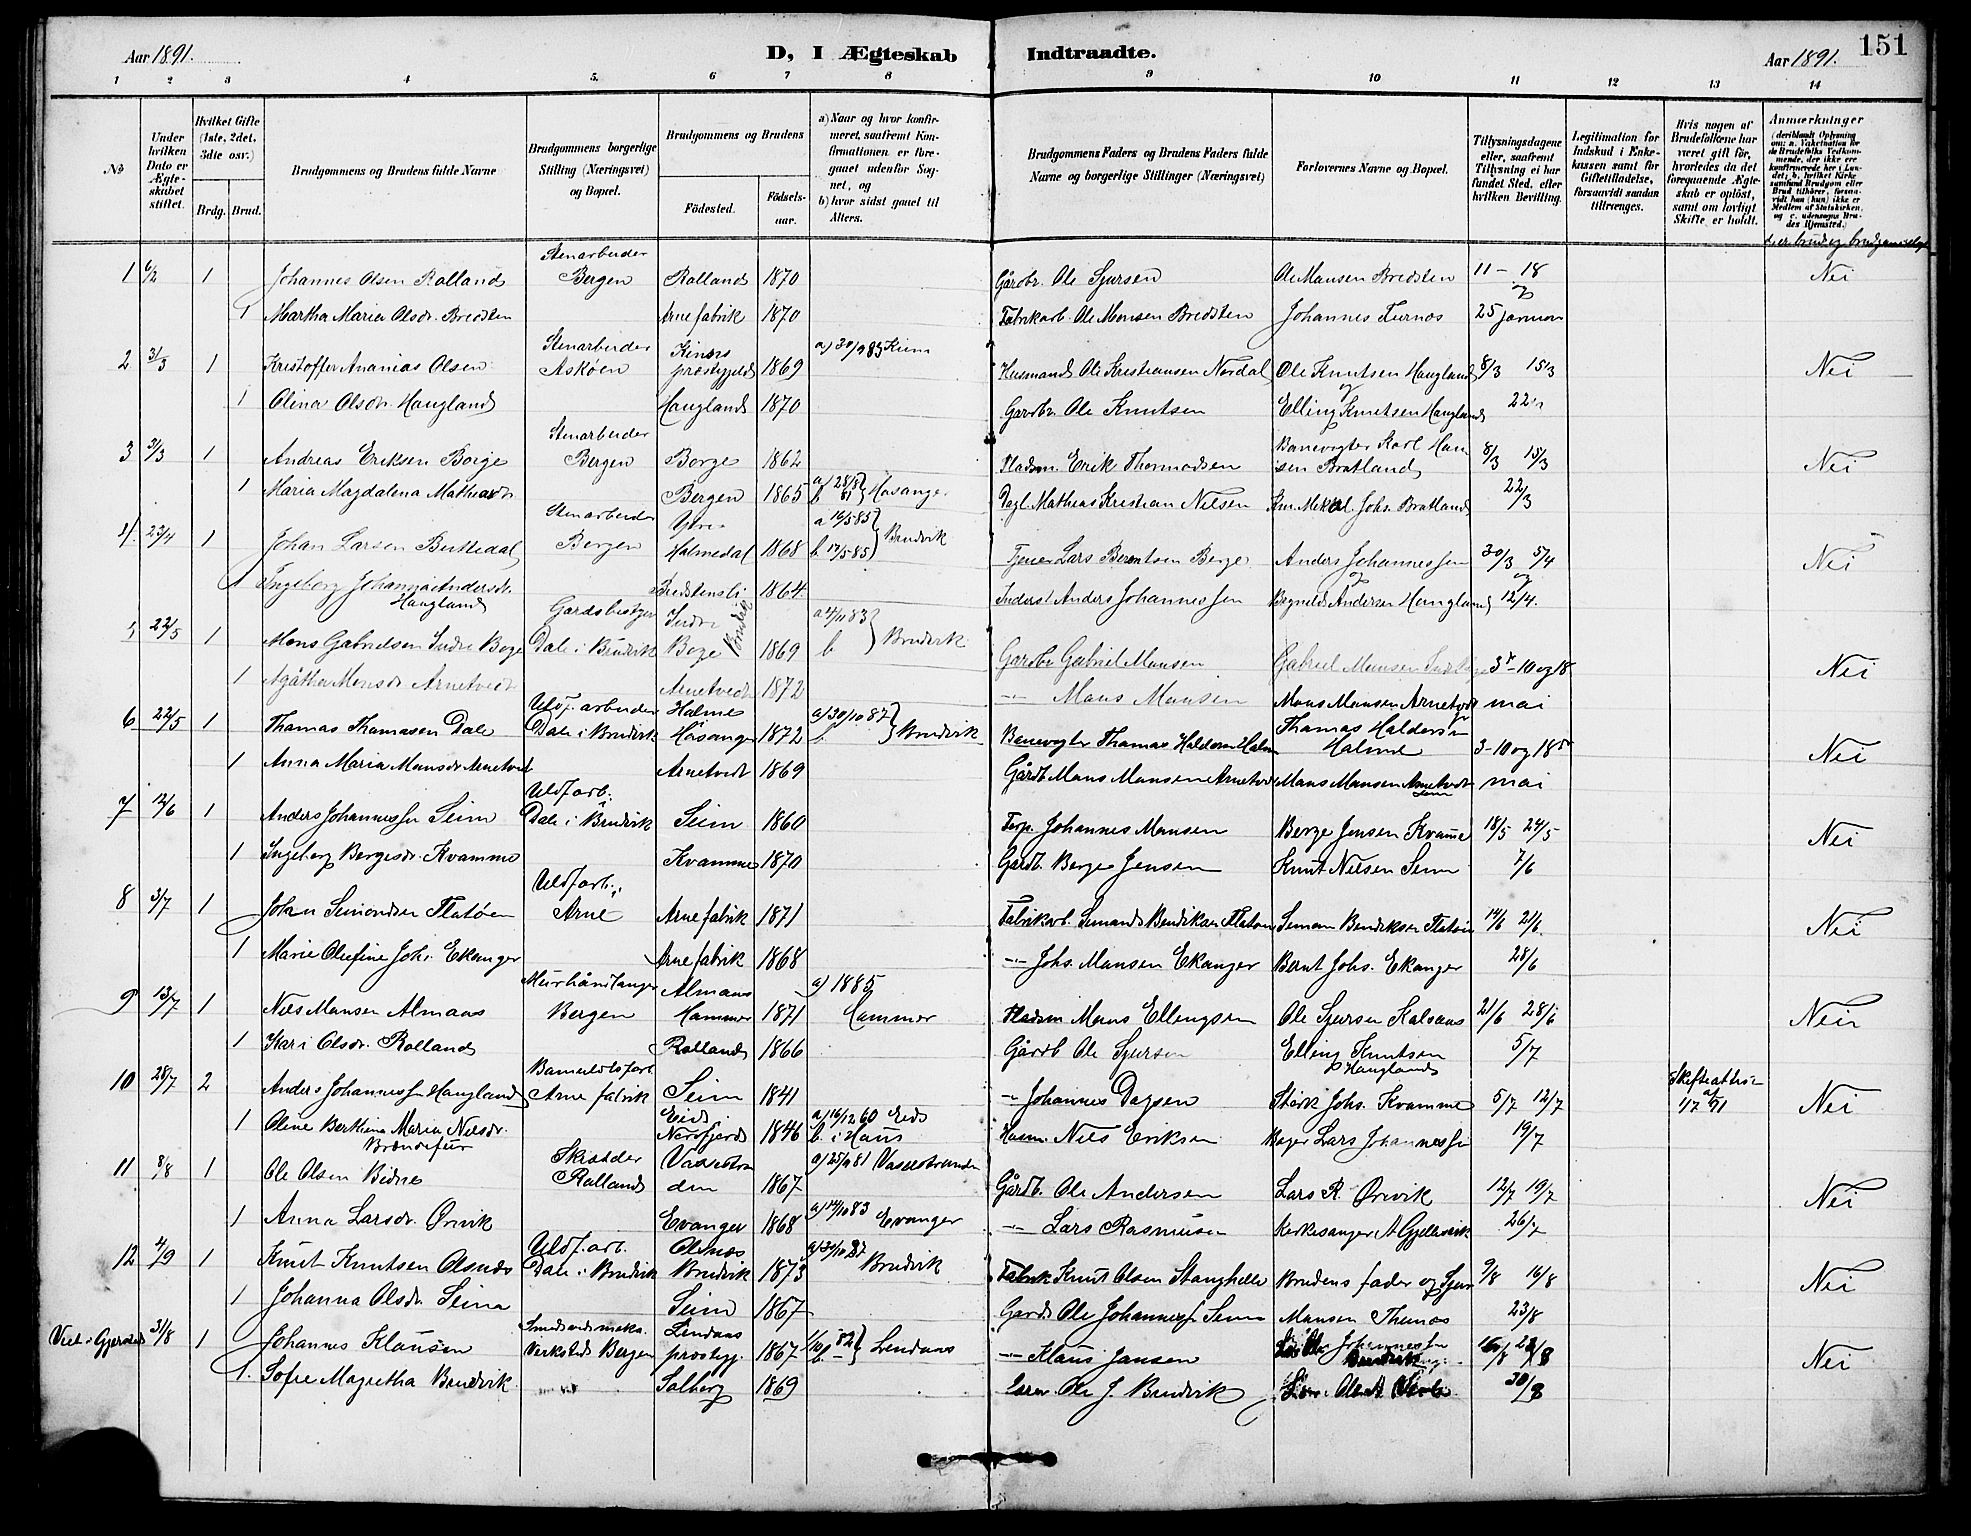 Aar 1891.
D, I Ægteskab Indtraadte.
Aar 1891.
151
1 2 3 4 5. 6 7 8 9 10 11 12 13 14
No
Under hvilken Dato er Ægteskabet stiftet.
Hvilket Gifte (1ste, 2det, 3die osv.)
Brdg. Brud.
Brudgommens og Brudens fulde Navne
Brudgommens borgerlige Stilling (Næringsvei) og Bopæl.
Brudgommens og Brudens
Fødested.
Fødselsaar.
a) Naar og hvor konfirmeret, saafremt Konfirmationen er foregaaet udenfor Sognet, og
b) hvor sidst gaaet til Alters.
Brudgommens Faders og Brudens Faders fulde Navne og borgerlige Stillinger (Næringsvei)
Forlovernes Navne og Bopæl.
Tillysningsdagene eller, saafremt Tillysning ei har fundet Sted, efter hvilken Bevilling.
Legitimation for Indskud i Enkekassen samt for Giftetilladelse, forsaavidt saadan tiltrænges.
Hvis nogen af Brudefolkene har været gift før, hvorledes da det foregaaende Ægteskab er opløst, samt om lovligt Skifte er holdt.
Anmærkninger
1 6/2 1 Johannes Olsen Rolland Stenarbeider Bergen Rolland 1870 Gårdbr. Ole Sjursen Ole Mansen Bredsten 11 - 18 Nei
1 Martha Maria Olsdr. Bredsten Arne fabrik 1870 Fabrikarb. Ole Monsen Bredsten Johannes Furnes 25 januar
2 31/3 1 Kristoffer Ananias Olsen Stenarbeider Askøen Kinns prestegjeld 1869 a) 30/9 83 Kinn Husmand Ole Kristiansen Nordal Ole Knutsen Haugland 8/3 15/3 Nei
1 Olina Olsdr. Haugland Haugland 1870 Gardbr. Ole Knutsen Elling Knutsen Haugland 22/3
3 31/3 1 Andreas Eriksen Borge Stenarbeider Bergen Borge 1862 Pladsm. Erik Thormodsen Banevogter Karl Hansen Bratland 8/3 15/3 Nei
1 Maria Magdalena Mathiasdr. Bergen 1865 Hosanger Dagl. Mathias Kristian Nilsen Johs. Bratland 22/3
4 23/4 1 Johan Larsen Stenarbeider Bergen Ytre Holmedal 1868 a 16/5 85 b 17/5 85 Bruvik Lars Berentsen Berge Anders Johannessen 30/3 5/4 Nei
1 Ingeborg Johanna Andersdr. Haugland Bredstensli 1864 Inderst Anders Johannessen Andersen Haugland 12/4.
5 22/5 1 Mons Gabrielsen Indre Boge Gardsbestyrer Dale i Bruvik Indre Boge Bruvik 1869 a 4/11 83 b Bruvik Gardbr Gabriel Mansen Gabriel Mansen 3 - 10 og 18 Nei
1 Agåtha Monsdr Arnetvedt Arnetvedt 1872 -"- Mans Mansen Mans Mansen Arnetvedt mai
6 22/5 1 Thomas Thomasen Dale Uldf. arbeider Dale i Bruvik Holme Hosanger 1872 a) 30/10 87 b Bruvik Banevogter Thomas Haldorsen Holme Thomas Haldorsen Holme 3 - 10 og 18 Nei
1 Anna Maria Mansdr Arnetvedt Arnetvedt 1869 Gårdb. Mans Mansen Arnetvedt Mans Mansen Arnetvedt mai
7 12/6 1 Anders Johannessen Seim Uldf arb. Dale i Bruvik Seim 1860 Johannes Mansen Berge Jensen Kvamme 18/5 24/5 Nei
1 Ingeborg Bergesdr. Kvamme Kvamme 1870 Gårdb. Berge Jensen Knut Nilsen Seim 7/6
8 3/7 1 Johan Simondsen Flatøen Uldf arb. Arne Arne fabrik 1871 Fabrikarb. Simond Bendiksen Flatøen Simon Bendiksen Flatøen 14/6 21/6 Nei
1 Marie Olufine Johs. Ekanger Arne fabrik 1868 -"- Johs. Mansen Ekanger Bernt Johs. Ekanger 28/6
9 13/7 1 Nils Mansen Almaas Murhåndlanger Bergen Almaas Hammer 1871 a) 1885 Hammer Pladsm Mans Ellingsen Ole Sjursen Kalsaas 21/6 28/6 Nei
1 Kari Olsdr. Rolland Rolland 1866 Gårdb Ole Sjursen Elling Knutsen Haugland 5/7
10 28/7 2 Anders Johannessen Haugland Bomuldsf arb. Arne fabrik Seim 1841 -"- Johannes Dagsen Stark Johs. Kvamme 5/7 12/7 Skifteattest af 1/7 91 Nei
1 Oline Berthine Maria Nilsdr. Eid Nordfjord 1846 a) 16/12 60 Eid b. i Haus Husm Nils Eriksen Bager Lars Johannessen 19/7
11 8/8 1 Ole Olsen Bidnes Skrædder Rolland Vasestranden 1867 a) 25/9 81 Vassestranden Gårdb. Ole Andersen Lars R. Ørvik 12/7 19/7 Nei
1 Anna Larsdr. Ørvik Evanger 1868 a) 14/10 83 Evanger -"- Lars Rasmusen Kirkesanger A Gjellesvik 26/7
12 4/9 1 Knut Knutsen Olsnes Uldf. arb. Dale i Bruvik Olsnes Bruvik 1873 a) 30/10 87 Bruvik Fabrik Knut Olsen Stanghelle Brudens fader og Sjur 9/8 16/8 Nei
1 Johanna Olsdr. Seim Seim 1867 Gårdb Ole Johannessen Seim Mansen Thunes 23/8
Viet i Gjerstad 31/8 1 Johannes Klausen Smedsvend meka. Verksted Bergen Lindaas prestegj. 1867 Lindaas -"- Klaus Jansen Johannessen Nei
1. Sofie Magretha Bruvik Solberg 1869 Ole J. Bruvik 30/8